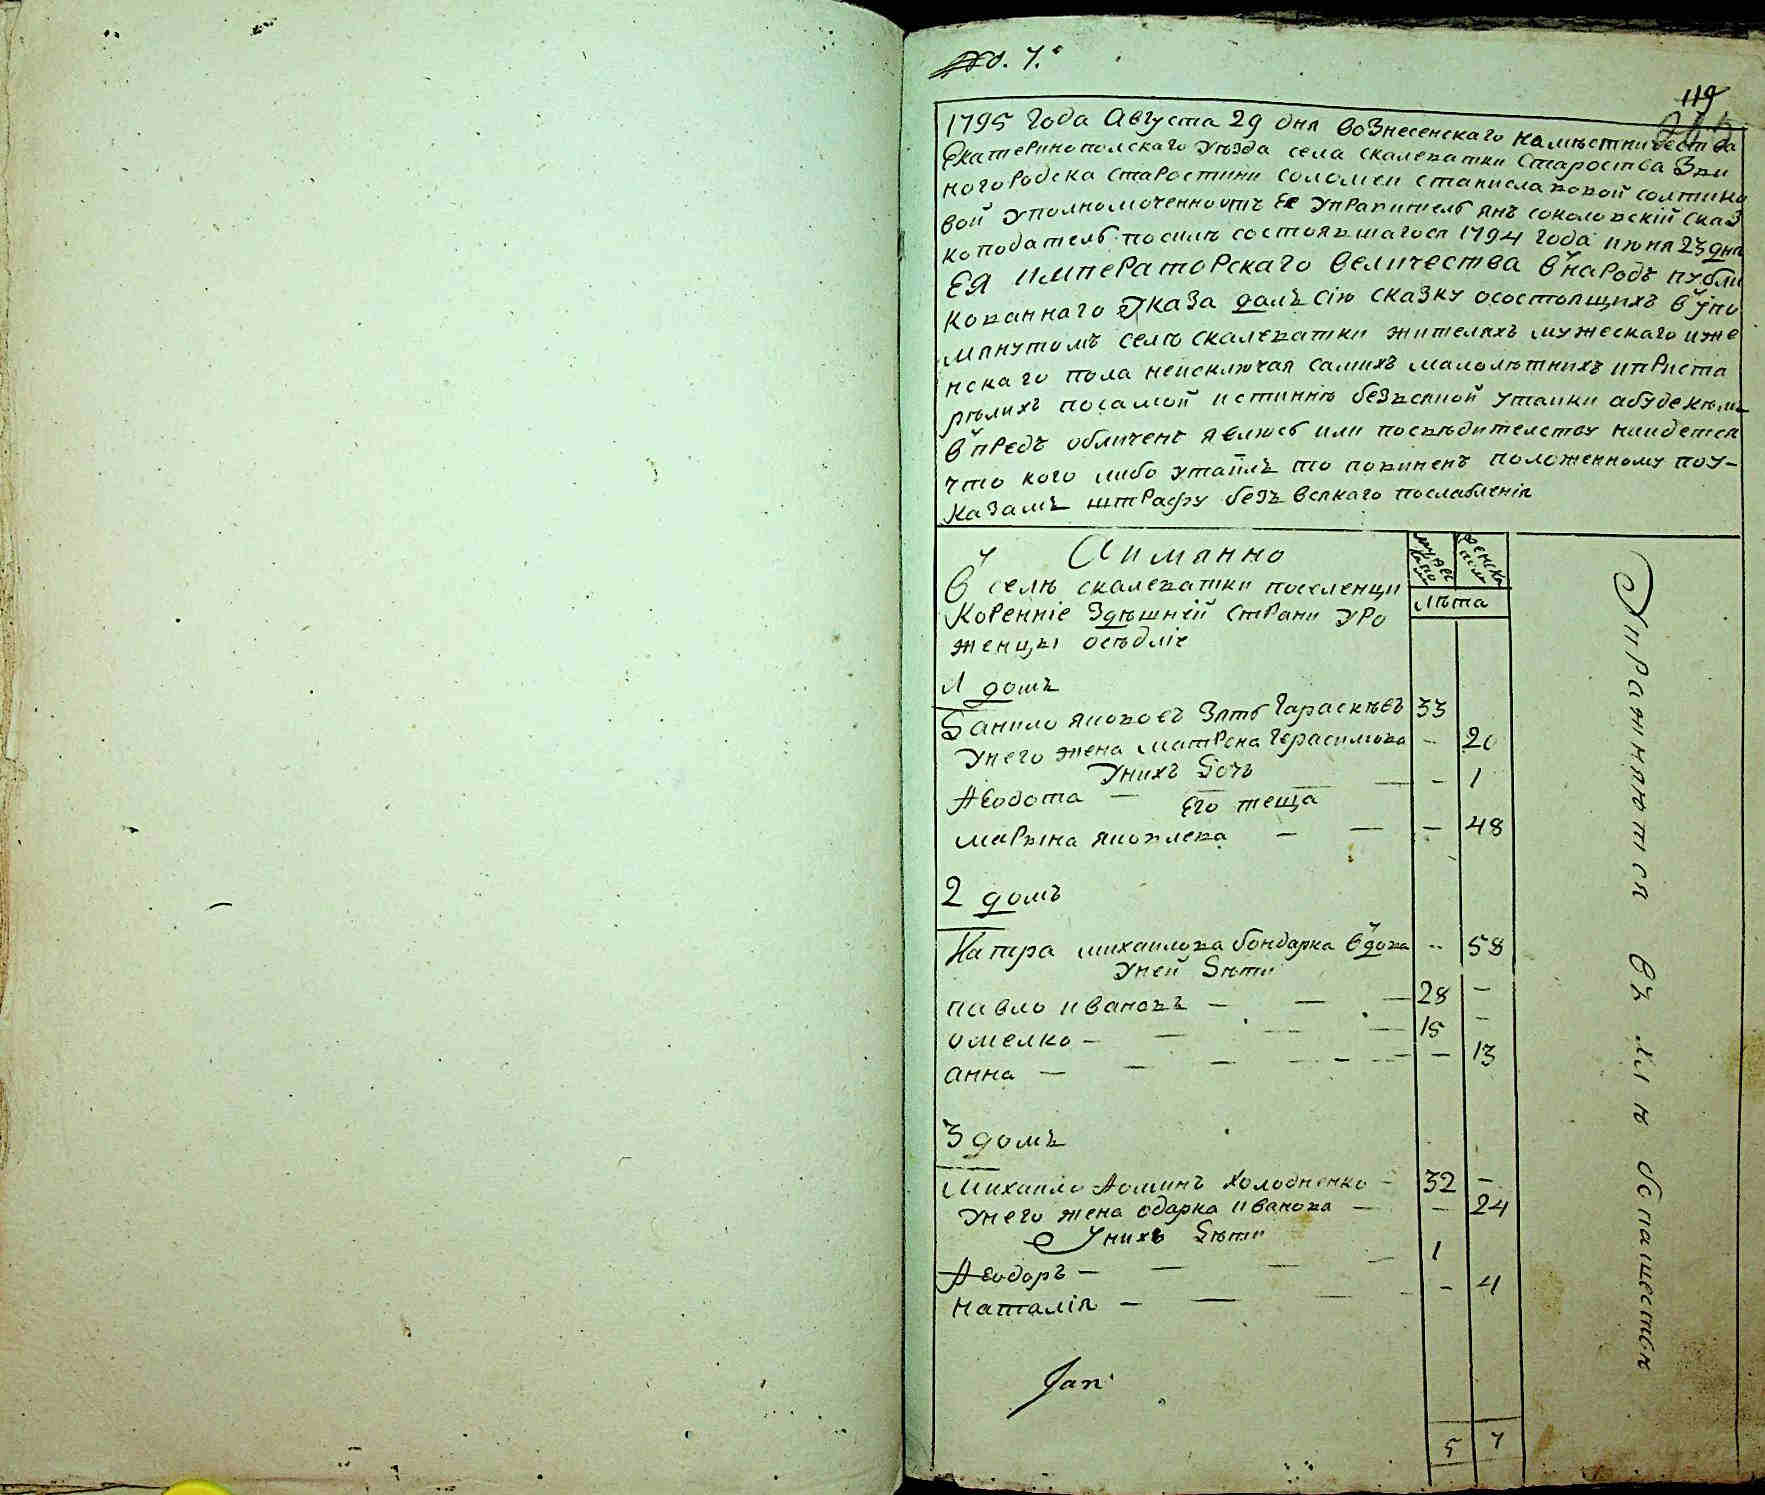 119
1795 года Августа 29 дня вознесенскаго намѣстничества
Екатеринополскаго уѣзда села скалеватки староства Зви
ногородска старостини соломеи станиславовой солтико
вой уполномоченноитъ Ее управитель янъ соколовскій сказ
коподатель посилѣ состоявшагося 1794 года июня 23 дня
ЕЯ императорскаго величества в народъ публи
кованнаго указа далъ сію сказку осостоящихъ в упо
мянутомъ селѣ скалеватки жителяхъ мужескаго и же
нскаго пола неисключая самихъ малолѣтнихъ и приста
рѣлихъ посамой истиннѣ безвсякой утаики абуде кѣмъ
в предъ обличенъ явлюсь или посвѣдителству наидется
что кого либо утаилъ то повиненъ положенному поу-
казамъ штрафу безъ всякаго послабленія
Аимянно
В селѣ скалеватки поселенци
Коренніе здѣшней страни уро
женцы осѣдліе
лѣта
1 домъ
Данило яковевъ Зять Гараскѣвъ 33
Унего жена матрона Герасимова — 20
Унихъ дочь
Ѳеодота — — 1
Его теща
марына яковлева — — — 48
2 домъ
Катра михаилова бондарка вдова — 58
Уней дѣти
павло ивановъ — — — 28 —
омелко — — — 15 —
анна — — — — 13
3 домъ
Михаило Ѳоминъ Холодненко — 32 —
Унего жена одарка иванова — — 24
Унихъ дѣти
Ѳеодоръ — — — — 1
наталія — — — — 4
Jan
5 7
Упражняются въ хлѣбопашествѣ